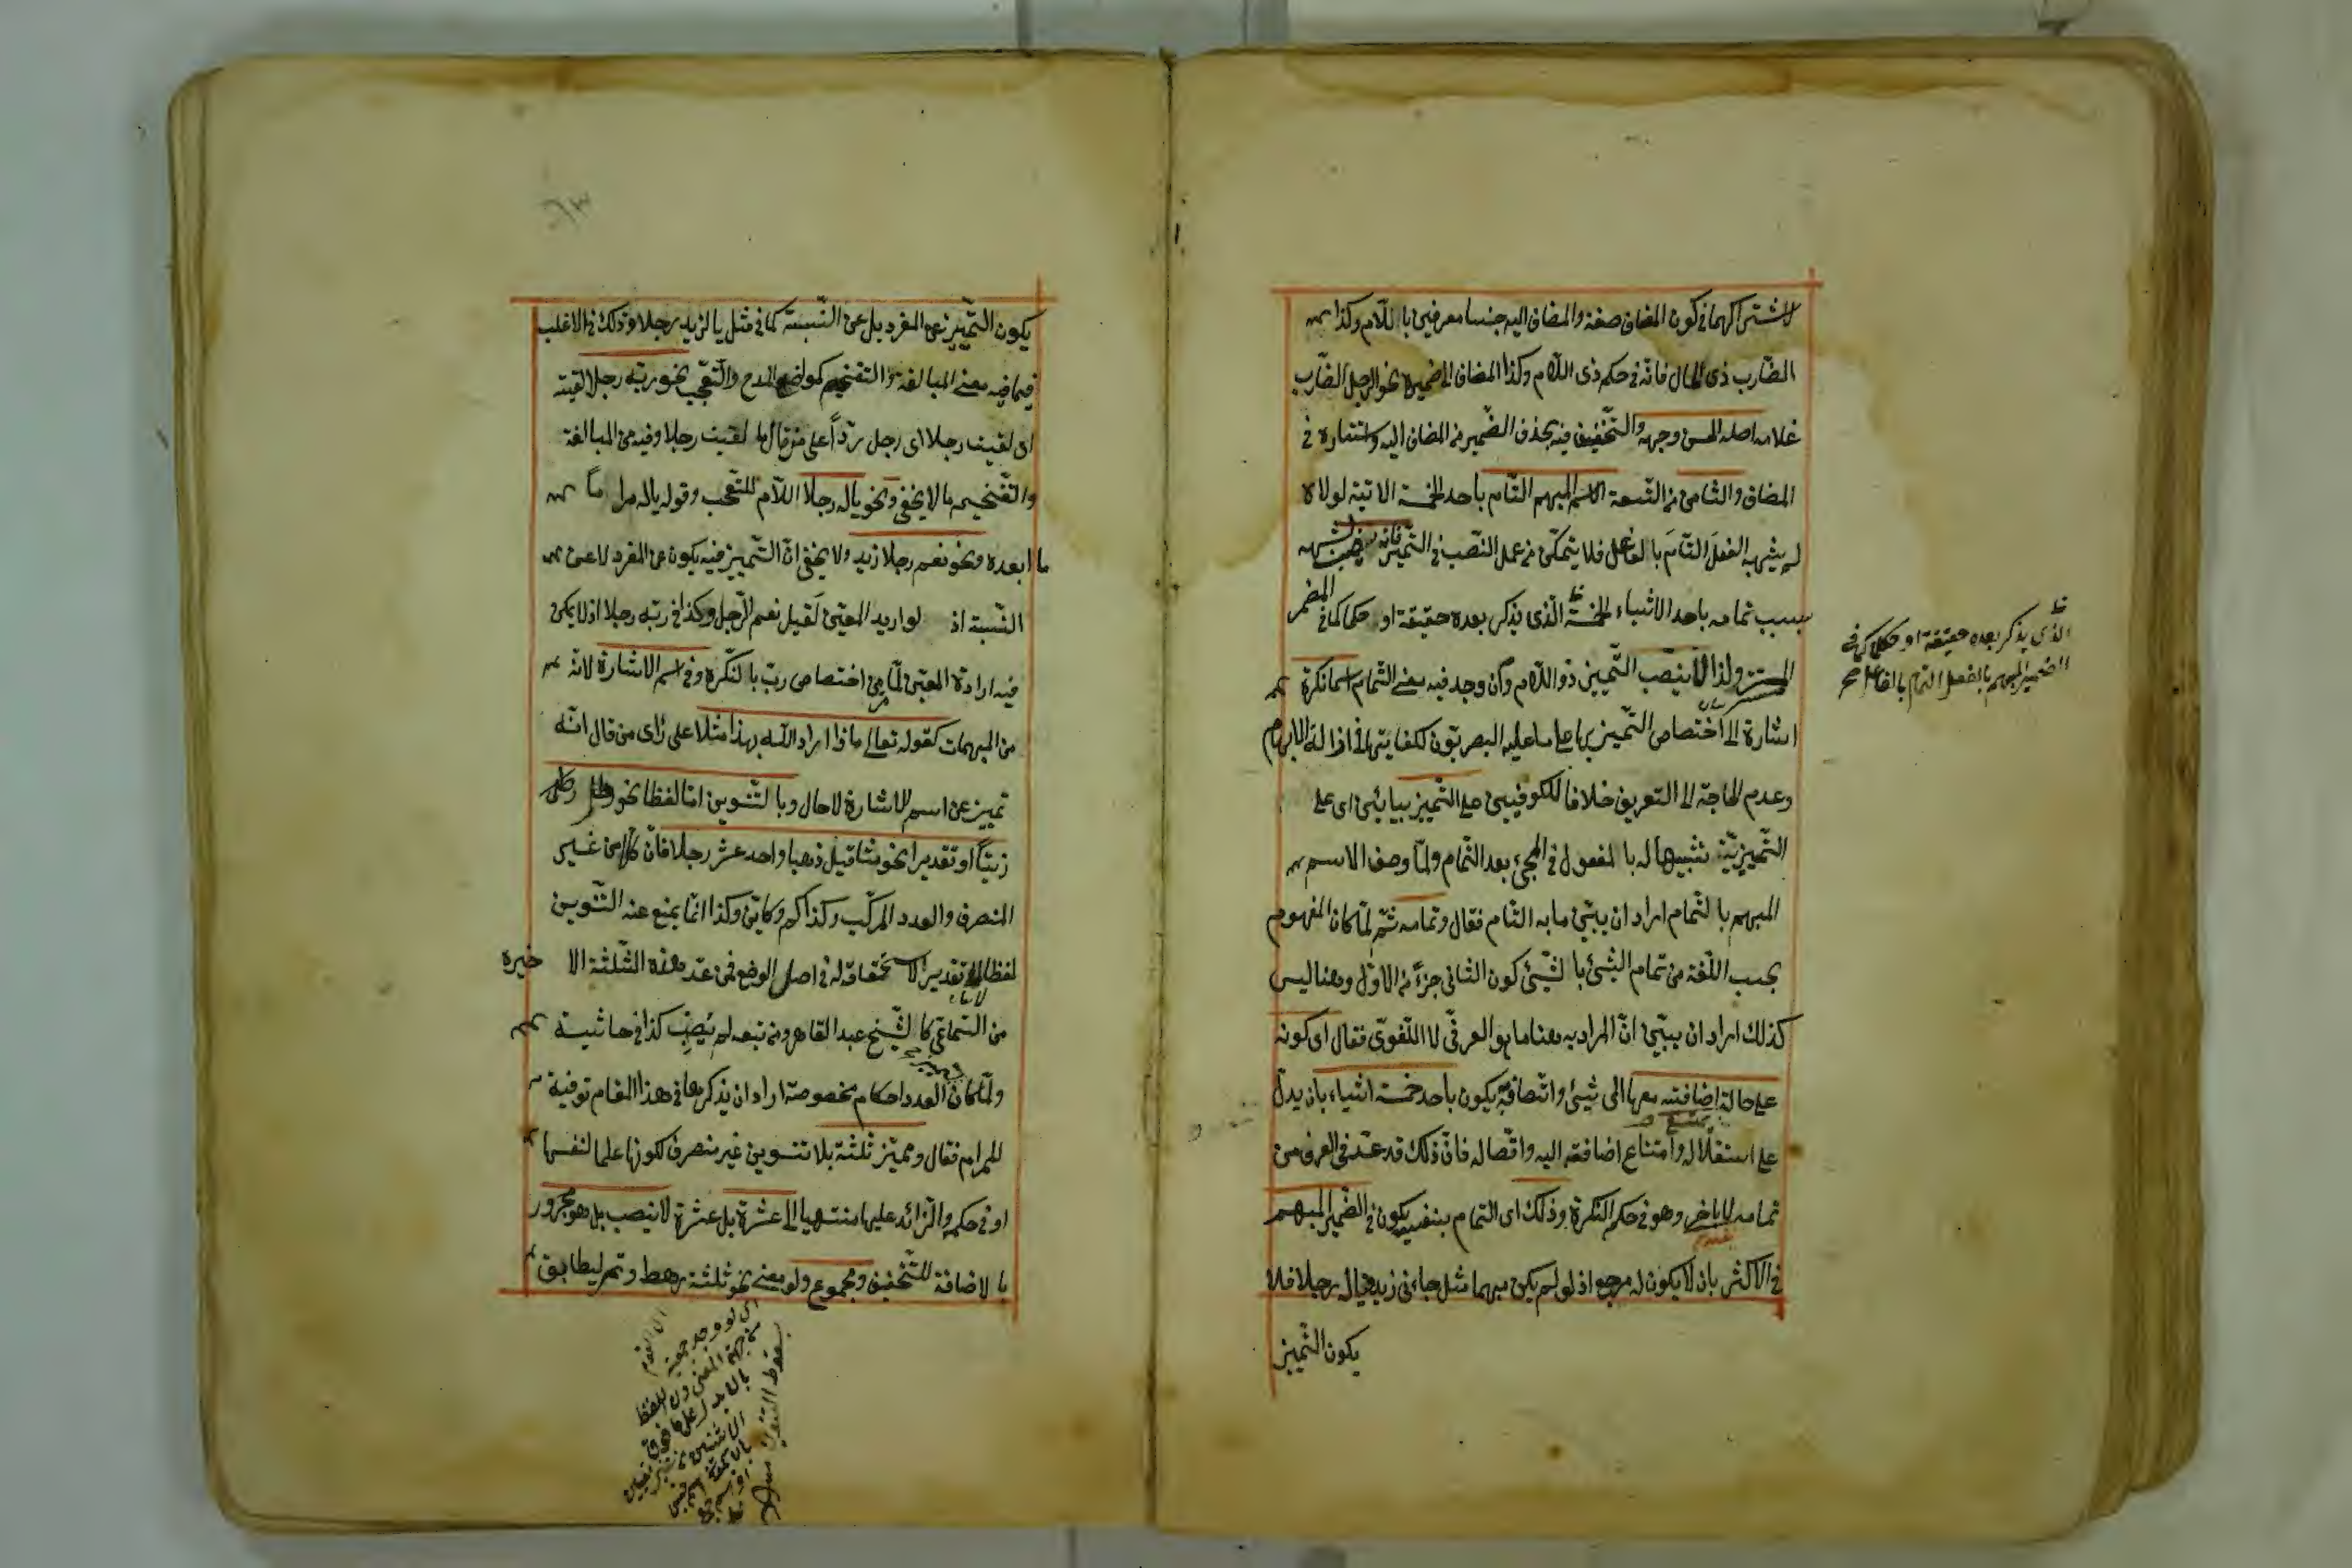 لاشتراكهما فى كون المضاف صفة والمضاف اليه جنسا معرفين باللام وكذا
الضارب ذى المال فانه فى حكم ذى اللام وكذا المضاف الى ضميره نحو الرجل الضارب
غلامه اصله الحسن وجهه والتخفيف فيه بحذف الضمير من المضاف اليه واستتاره فى
المضاف والثامن من التسعة الاسم المبهم التام باحد الخمسة الاتية لولاه
لم يشبه الفعل التام بالفاعل فلا يتمكن من عمل النصب فى التميز فانه ينصب
بسبب تمامه باحد الاشياء الخمسة الذى يذكر بعده حقيقة او حكما كما فى المضمر
المستتر ولذا لا ينصب التميز ذو اللام وان وجد فيه معنى التمام اسما نكرة
اشارة الى اختصاص التميز بها على ما عليه البصريون لكفايتها فى ازالة الابهام
وعدم الحاجة الى التعريف خلافا للكوفيين على التميز بيائين اى على
التميزية تشبيها له بالمفعول فى المجئ بعد التمام ولما وصف الاسم
المبهم بالتمام اراد ان يبين ما به التام فقال وتمامه ثم لما كان المفهوم
بحسب اللغة من تمام الشئ بالشئ كون الثانى جزأ من الاول وهنا ليس
كذلك اراد ان يبين ان المراد به هنا ما هو العرفى لا اللغوى فقال اى كونه
على حالة اضافته معها الى شئ واتصافه يكون باحد خمسة اشياء بان يدل
يمتنع
على استقلاله وامتناع اضافته اليه واتصاله فان ذلك قد عد فى العرف من
تمامه وهو فى حكم النكرة وذلك اى التمام بنفسه يكون فى الضمير المبهم
فى الاكثر بان لا يكون له مرجع اذ لو لم يكن مبهما مثل جاءنى زيد فيا له رجلا فلا
يكون التميز
الذى يذكر بعده حقيقة او حكما كما فى
الضمير المبهم بالفعل التام بالفاعل صح
٦٣
يكون التميز عن المفرد بل عن النسبة كما فى مثل يا لزيد رجلا وذلك فى الاغلب
فيما فيه معنى المبالغة والتفخيم كمواضع المدح والتعجب نحو ربه رجلا لقيته
اى لقيت رجلا اى رجل ردا على من قال ما لقيت رجلا وفيه من المبالغة
والتفخيم ما لا يخفى ونحو يا له رجلا اللام للتعجب وقوله يا له مرا ما
ما ابعده ونحو نعم رجلا زيد ولا يخفى ان التميز فيه يكون عن المفرد لا عن
النسبة اذ لو اريد المعين لقيل نعم الرجل وكذا فى ربه رجلا اذ لا يمكن
فيه ارادة المعين لما مر من اختصاص رب بالنكرة وفى اسم الاشارة لانه
من المبهمات كقوله تعالى ماذا اراد الله بهذا مثلا على رأى من قال انه
تميز عن اسم الاشارة لا حال وبالتنوين اما لفظا نحو رطل
زيتا او تقديرا نحو مثاقيل ذهبا واحد عشر رجلا فان كلا من غير
المنصرف والعدد المركب وكذا كم وكاين وكذا انما يمنع عنه التنوين
لفظا لا تقديرا لاستحقاقه له فى اصل الوضع فمن عد هذه الثلثة الاخيرة
من السماعى كالشيخ عبد القاهر ومن تبعه لم يصب كذا فى حاشية
ولما كان العدد احكام مخصوصة اراد ان يذكرها فى هذا المقام توفية
للمرام فقال ومميز ثلثة بلا تنوين غير منصرف لكونها علما لنفسها
او فى حكمه والزائد عليها منتهيا الى عشرة بل عشرة لا ينصب بل هو مجرور
بالاضافة للتخفيف ومجموع ولو معنى نحو ثلثة رهط وتمر ليطابق
اى لو وجد جمعية
من جهة المعنى دون اللفظ